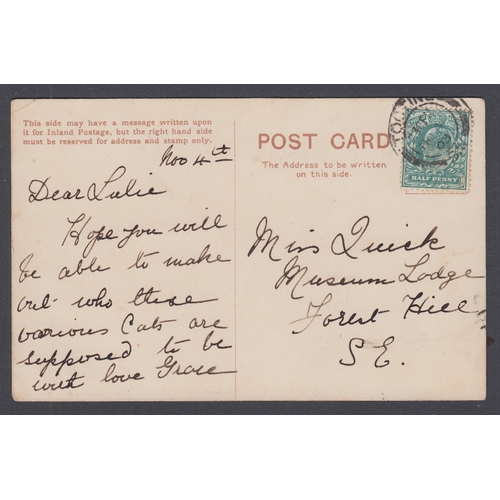 This side may have a message written upon
it for Inland Postage, but the right hand side
must be reserved for address and stamp only.
Nov 4th
Dear Lulie
Hope you will
be able to make
out who these
various Cats are
supposed to be
with love Grace
POST CARD
The Address to be written
on this side.
HALF PENNY
Miss Quick
Museum Lodge
Forest Hill
S.E.